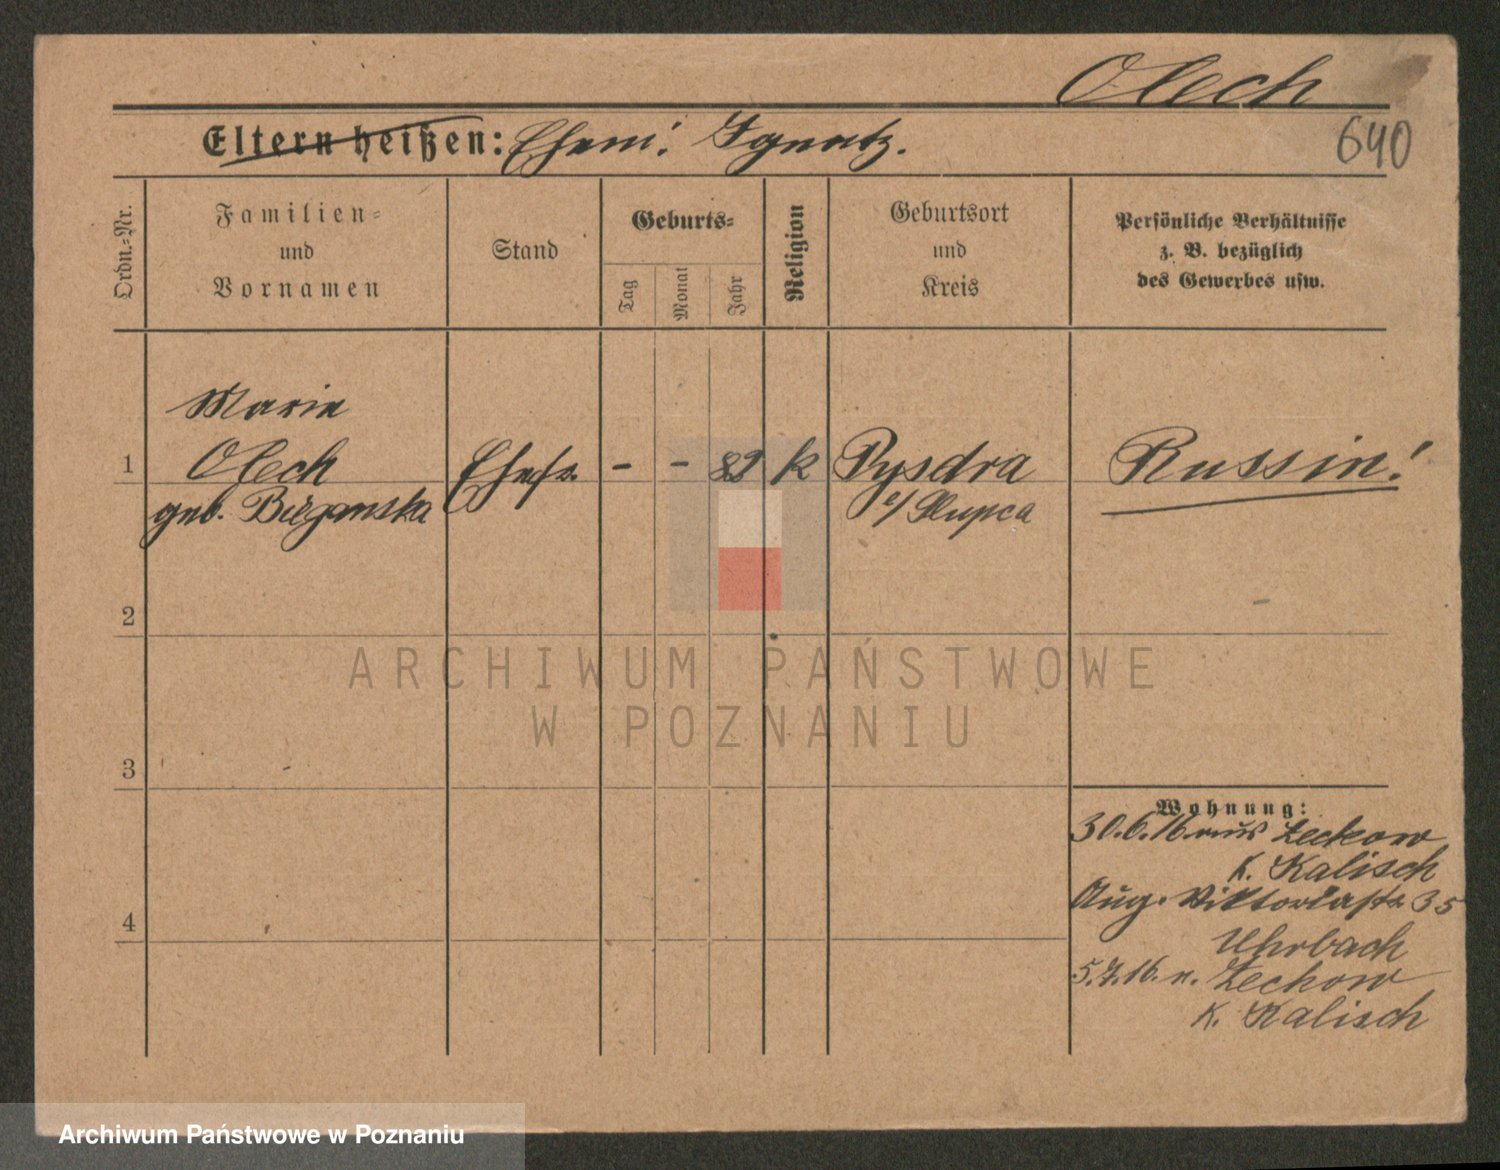 Olech
640
Eltern heißen: Ehem: Ignatz.
Ordn.=Nr.
Familien=
und
Vornamen
Stand
Geburts=
Tag
Monat
Jahr
Religion
Geburtsort
und
Kreis
Persönliche Verhältnisse
z. B. bezüglich
des Gewerbes usw.
Marie
1 Olech Ehefr. - - 82 k Pysdra Russin!
geb. Bieganska
Slupca
2
3
4
Wohnung:
30.6.16. aus Zeckow
K. Kalisch
Aug. Viktoriastr. 35
Uhrbach
5.7.16. n. Zeckow
K. Kalisch
ARCHIWUM PAŃSTWOWE
W POZNANIU
Archiwum Państwowe w Poznaniu